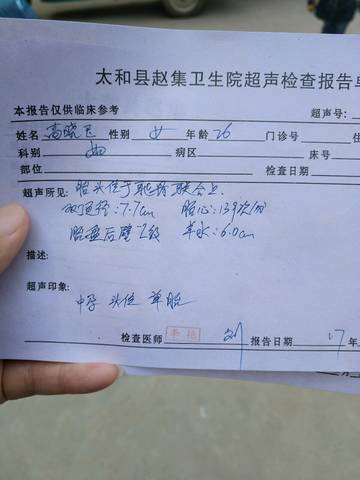 太和县赵集卫生院超声检查报告单
本报告仅供临床参考 超声号:
姓名 高晓 性别 女 年龄 26 门诊号
科别 妇 病区 床号
部位 检查日期
超声所见: 胎头位于耻骨联合上
双顶径:7.7cm 胎心:139次/分
胎盘后壁 2级 羊水:6.0cm
描述:
超声印象:
中孕 头位 单胎
检查医师 刘 报告日期 17年